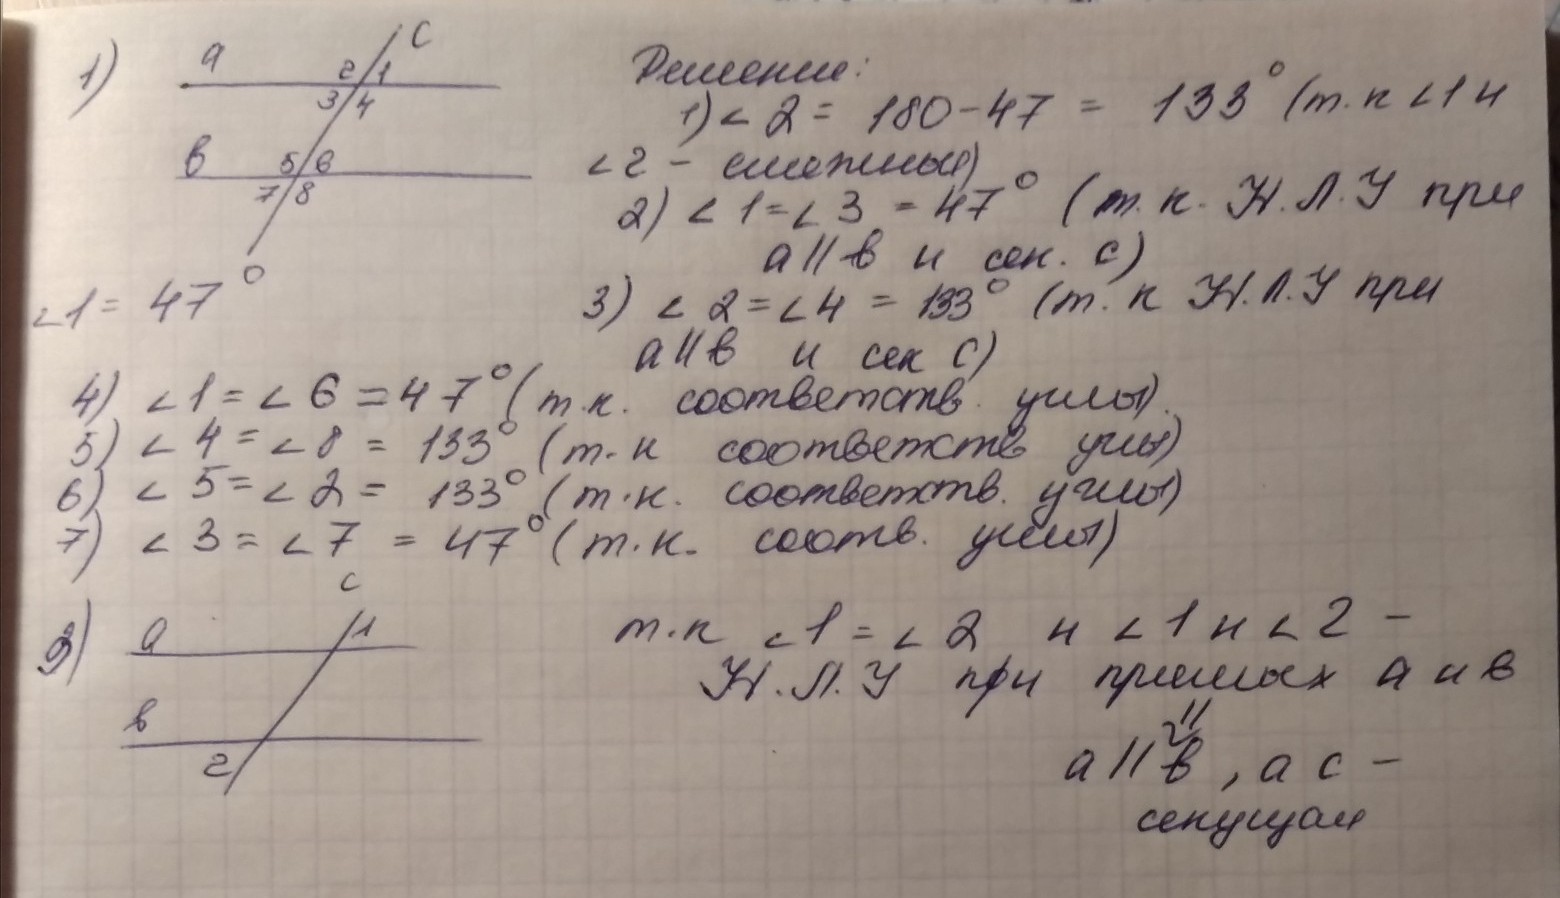 1) a c
2 1
3 4
в 5 6
7 8
∠1 = 47°
Решение:
1) ∠2 = 180-47 = 133° (т.к ∠1 и
∠2 - смежные)
2) ∠1=∠3 = 47° (т.к. Н.Л.У при
a||в и сек. c)
3) ∠2=∠4 = 133° (т.к Н.Л.У при
a||в и сек c)
4) ∠1=∠6=47° (т.к. соответств. углы).
5) ∠4=∠8= 133° (т.к соответств углы)
6) ∠5=∠2= 133° (т.к. соответств. углы)
7) ∠3=∠7 = 47° (т.к. соотв. углы)
c
a 1
в
2
т.к ∠1=∠2 и ∠1 и ∠2 -
Н.Л.У при прямых a и в
⇓
a||в, а c -
секущая